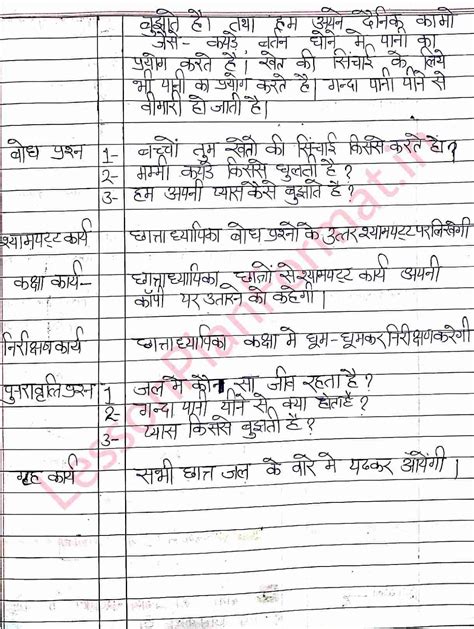 बुझाते है। तथा हम अपने दैनिक कामो
जैसे - कपडे, बर्तन धोने मे पानी का
प्रयोग करते है। खेत की सिंचाई के लिये
भी पानी का प्रयोग करते है। गन्दा पानी पीने से
बीमारी हो जाती है।
बोध प्रश्न 1- बच्चों तुम खेतो की सिंचाई किससे करते हो?
2- मम्मी कपडे किससे धुलती है?
3- हम अपनी प्यास कैसे बुझाते है?
श्यामपट्ट कार्य छात्राध्यापिका बोध प्रश्नो के उत्तर श्यामपट्ट पर लिखेगी
कक्षा कार्य- छात्राध्यापिका छात्रों से श्यामपट्ट कार्य अपनी
कॉपी पर उतारने को कहेगी।
निरीक्षण कार्य छात्राध्यापिका कक्षा मे घूम-घूमकर निरीक्षण करेगी
पुनरावृत्ति प्रश्न 1 जल मे कौन सा जीव रहता है?
2- गन्दा पानी पीने से क्या होता है?
3- प्यास किससे बुझती है?
गृह कार्य सभी छात्र जल के बारे मे पढकर आयेंगी।
LessonPlanFormat.in